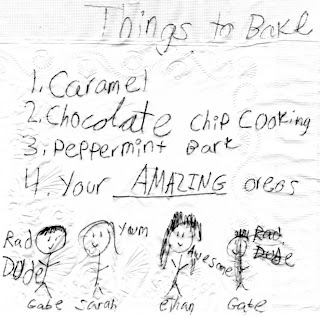 Things to Bake
1. Caramel
2. Chocolate chip Cooking
3. Peppermint Bark
4. Your AMAZING oreos
Rad Dude
Yum
Awesome
Rad Dude
Gabe Sarah Ethan Gabe